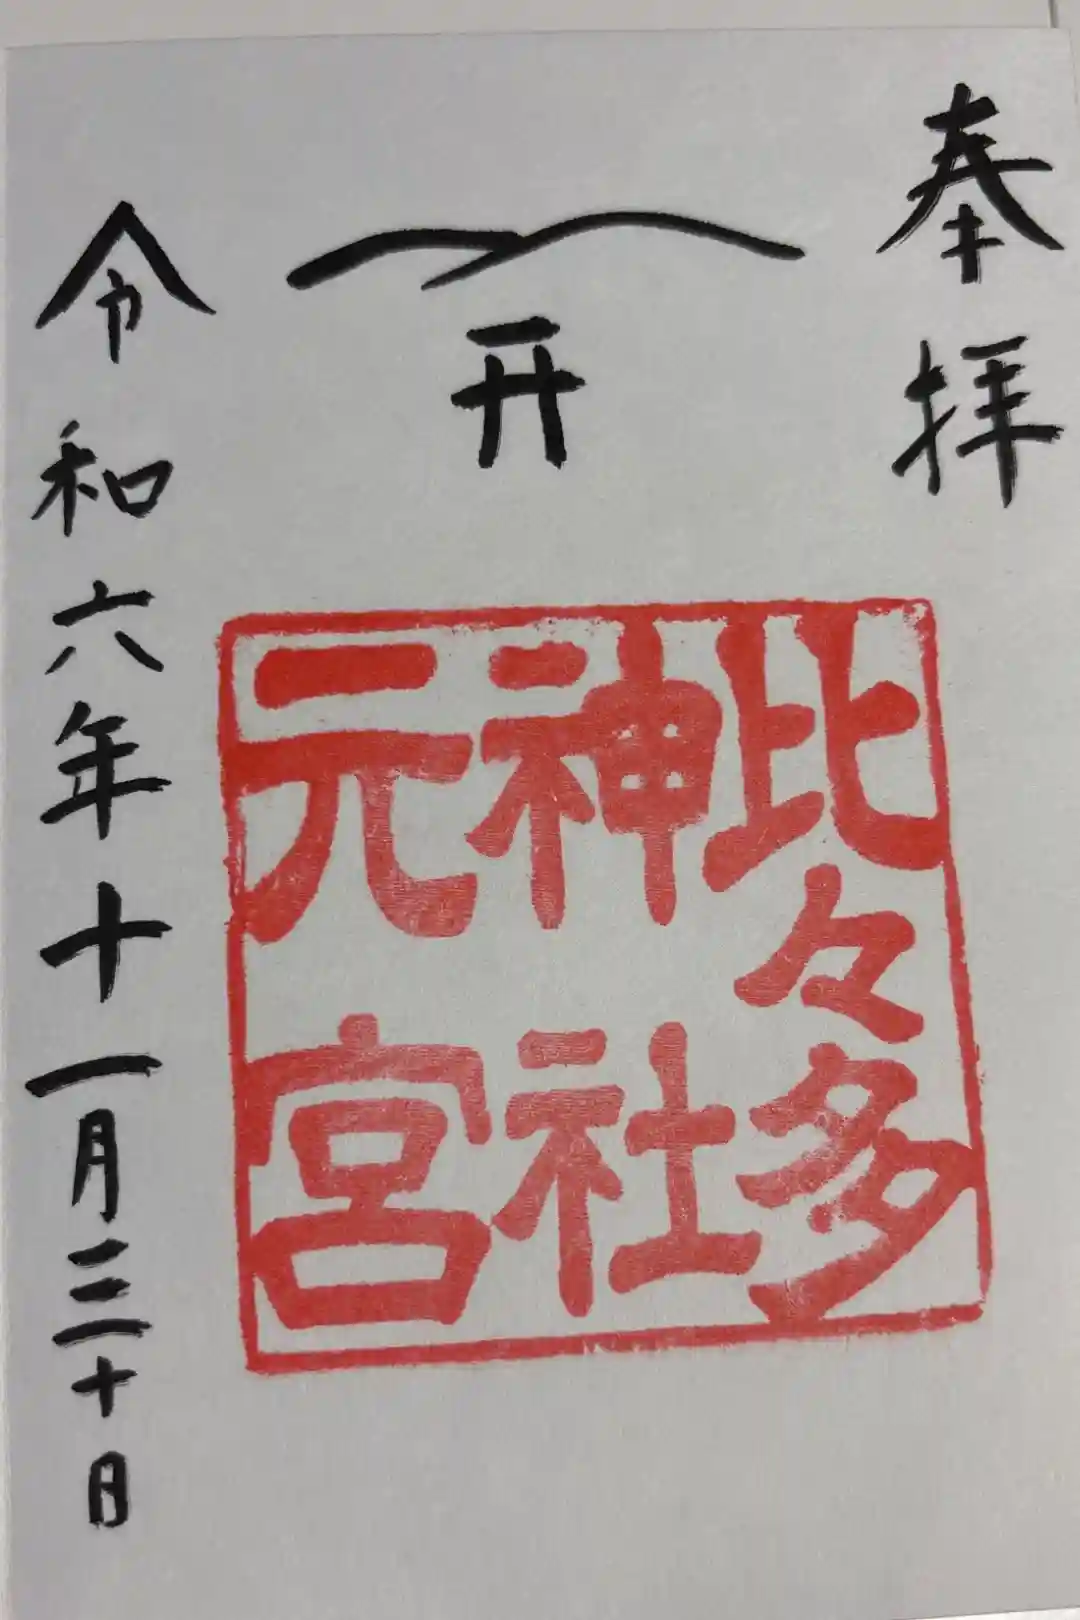 奉拝
比々多
神社
元宮
令和六年十一月三十日